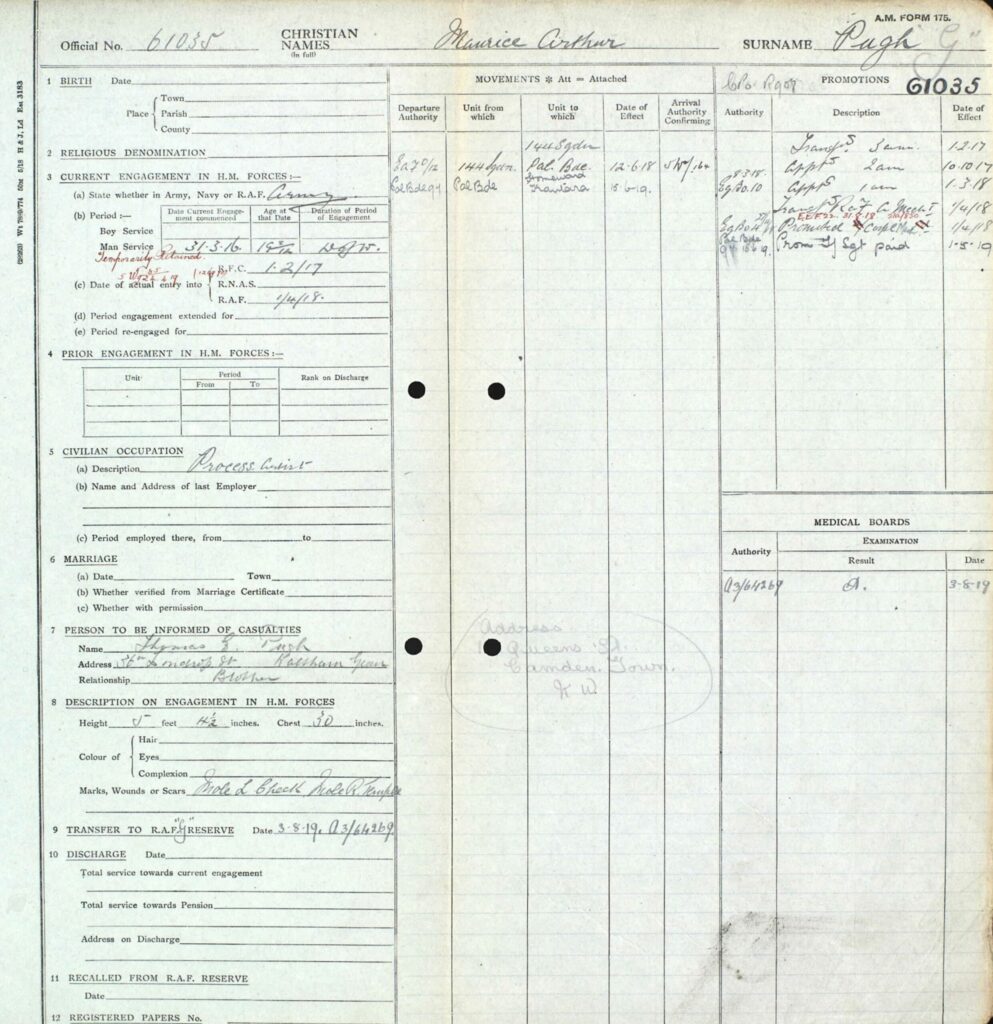 A.M. FORM 175.
Official No. 61035 CHRISTIAN NAMES (in full) Maurice Arthur SURNAME Pugh "G"
1 BIRTH Date
Place Town
Parish
County
2 RELIGIOUS DENOMINATION
3 CURRENT ENGAGEMENT IN H.M. FORCES:—
(a) State whether in Army, Navy or R.A.F. Army
(b) Period:— Date Current Engagement commenced Age at that Date Duration of Period of Engagement
Boy Service
Man Service 31-3-16 D of W.
Temporarily Retained
(c) Date of actual entry into R.F.C. 1-2/17
R.N.A.S.
R.A.F. 1/4/18.
(d) Period engagement extended for
(e) Period re-engaged for
4 PRIOR ENGAGEMENT IN H.M. FORCES:—
Unit Period Rank on Discharge
From To
5 CIVILIAN OCCUPATION
(a) Description Process Artist
(b) Name and Address of last Employer
(c) Period employed there, from to
6 MARRIAGE
(a) Date Town
(b) Whether verified from Marriage Certificate
(c) Whether with permission
7 PERSON TO BE INFORMED OF CASUALTIES
Name Thomas E. Pugh
Address
Relationship Brother
8 DESCRIPTION ON ENGAGEMENT IN H.M. FORCES
Height 5 feet 4½ inches. Chest 30 inches.
Colour of Hair
Eyes
Complexion
Marks, Wounds or Scars Mole L Cheek Mole R Temple
9 TRANSFER TO R.A.F. "G" RESERVE Date 3-8-19. A3/64269
10 DISCHARGE Date
Total service towards current engagement
Total service towards Pension
Address on Discharge
11 RECALLED FROM R.A.F. RESERVE
Date
12 REGISTERED PAPERS No.
MOVEMENTS * Att = Attached
Departure Authority Unit from which Unit to which Date of Effect Arrival Authority Confirming
144 Sqdn
144 Sqdn. Pal. Bde. 12-6-18
Pal Bde 97 Pal Bde Homeward 15-6-19.
Address
Queens Rd.
Camden Town.
N.W.
PROMOTIONS 61035
Authority Description Date of Effect
Transf'd 3 am. 1.2.17
Appt'd 2am 10.10.17
Eg Bo.10 Appt'd 1am 1-3.18
1/4/18
Promoted 1/4/18
Pal Bde
97 15.6.19. Prom T/Sgt paid 1-5-19
MEDICAL BOARDS
Authority EXAMINATION
Result Date
A3/64269 A. 3-8-19